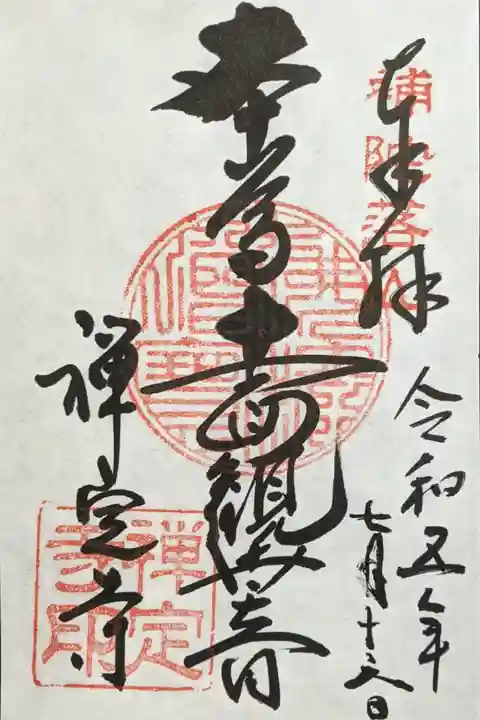 奉拝
補陀落山
令和五年
七月十六日
本尊十一面観世音
禅定寺
禅定
寺印